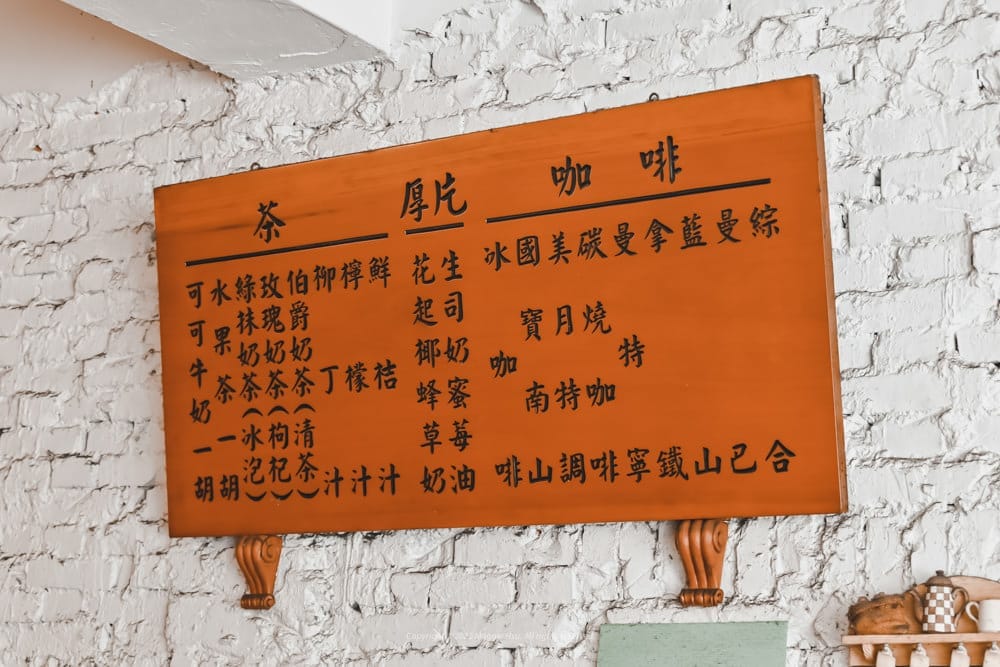 茶
可可牛奶一胡
水果茶一胡
綠抹奶茶(冰泡)
玫瑰奶茶(枸杞)
伯爵奶茶(清茶)
柳丁汁
檸檬汁
鮮桔汁
厚片
花生
起司
椰奶
蜂蜜
草莓
奶油
咖啡
冰咖啡
國寶南山
美月特調
碳燒咖啡
曼特寧
拿鐵
藍山
曼巴
綜合